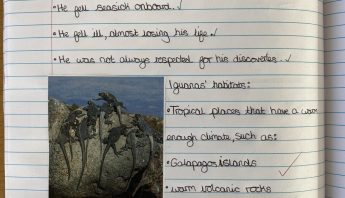 •He fell seasick onboard.
•He fell ill, almost losing his life.
•He was not always respected for his discoveries.
Iguanas' habitats:
•Tropical places that have a warm
enough climate, such as:
•Galapagos islands
•warm volcanic rocks